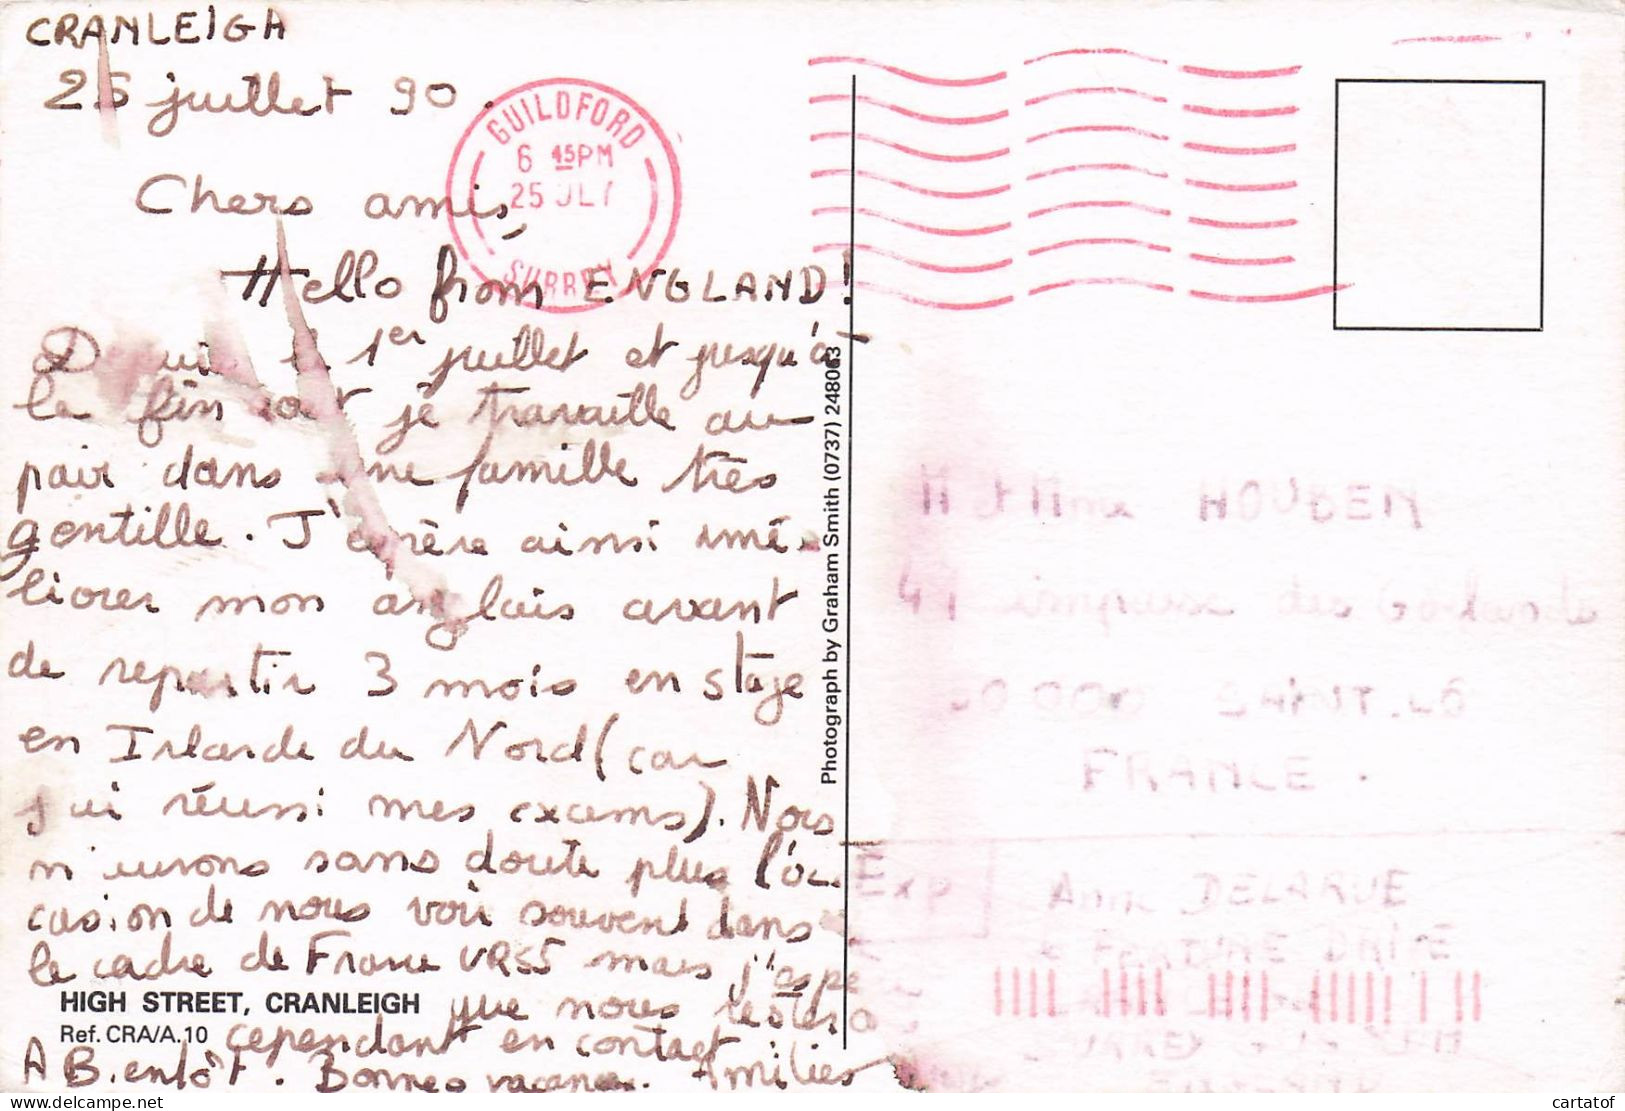 CRANLEIGH
25 juillet 90.
Chers amis,
Hello from ENGLAND!
1er juillet et jusqu'à
la fin août je travaille au
pair dans une famille très
gentille. J'espère ainsi amé-
liorer mon anglais avant
de repartir 3 mois en stage
en Irlande du Nord (car
j'ai réussi mes exams). Nous
n'aurons sans doute plus l'oc-
casion de nous voir souvent dans
le cadre de France URSS mais j'espère
que nous resterons
cependant en contact
A Bientôt. Bonnes vacances. Amitiés
HIGH STREET, CRANLEIGH
Ref. CRA/A.10
GUILDFORD
6 45PM
25 JLY
SURREY
Photograph by Graham Smith (0737) 248063
M et Mme HOUBEN
impasse des
SAINT-LÔ
FRANCE.
Exp
Anne DELARUE
cartatof